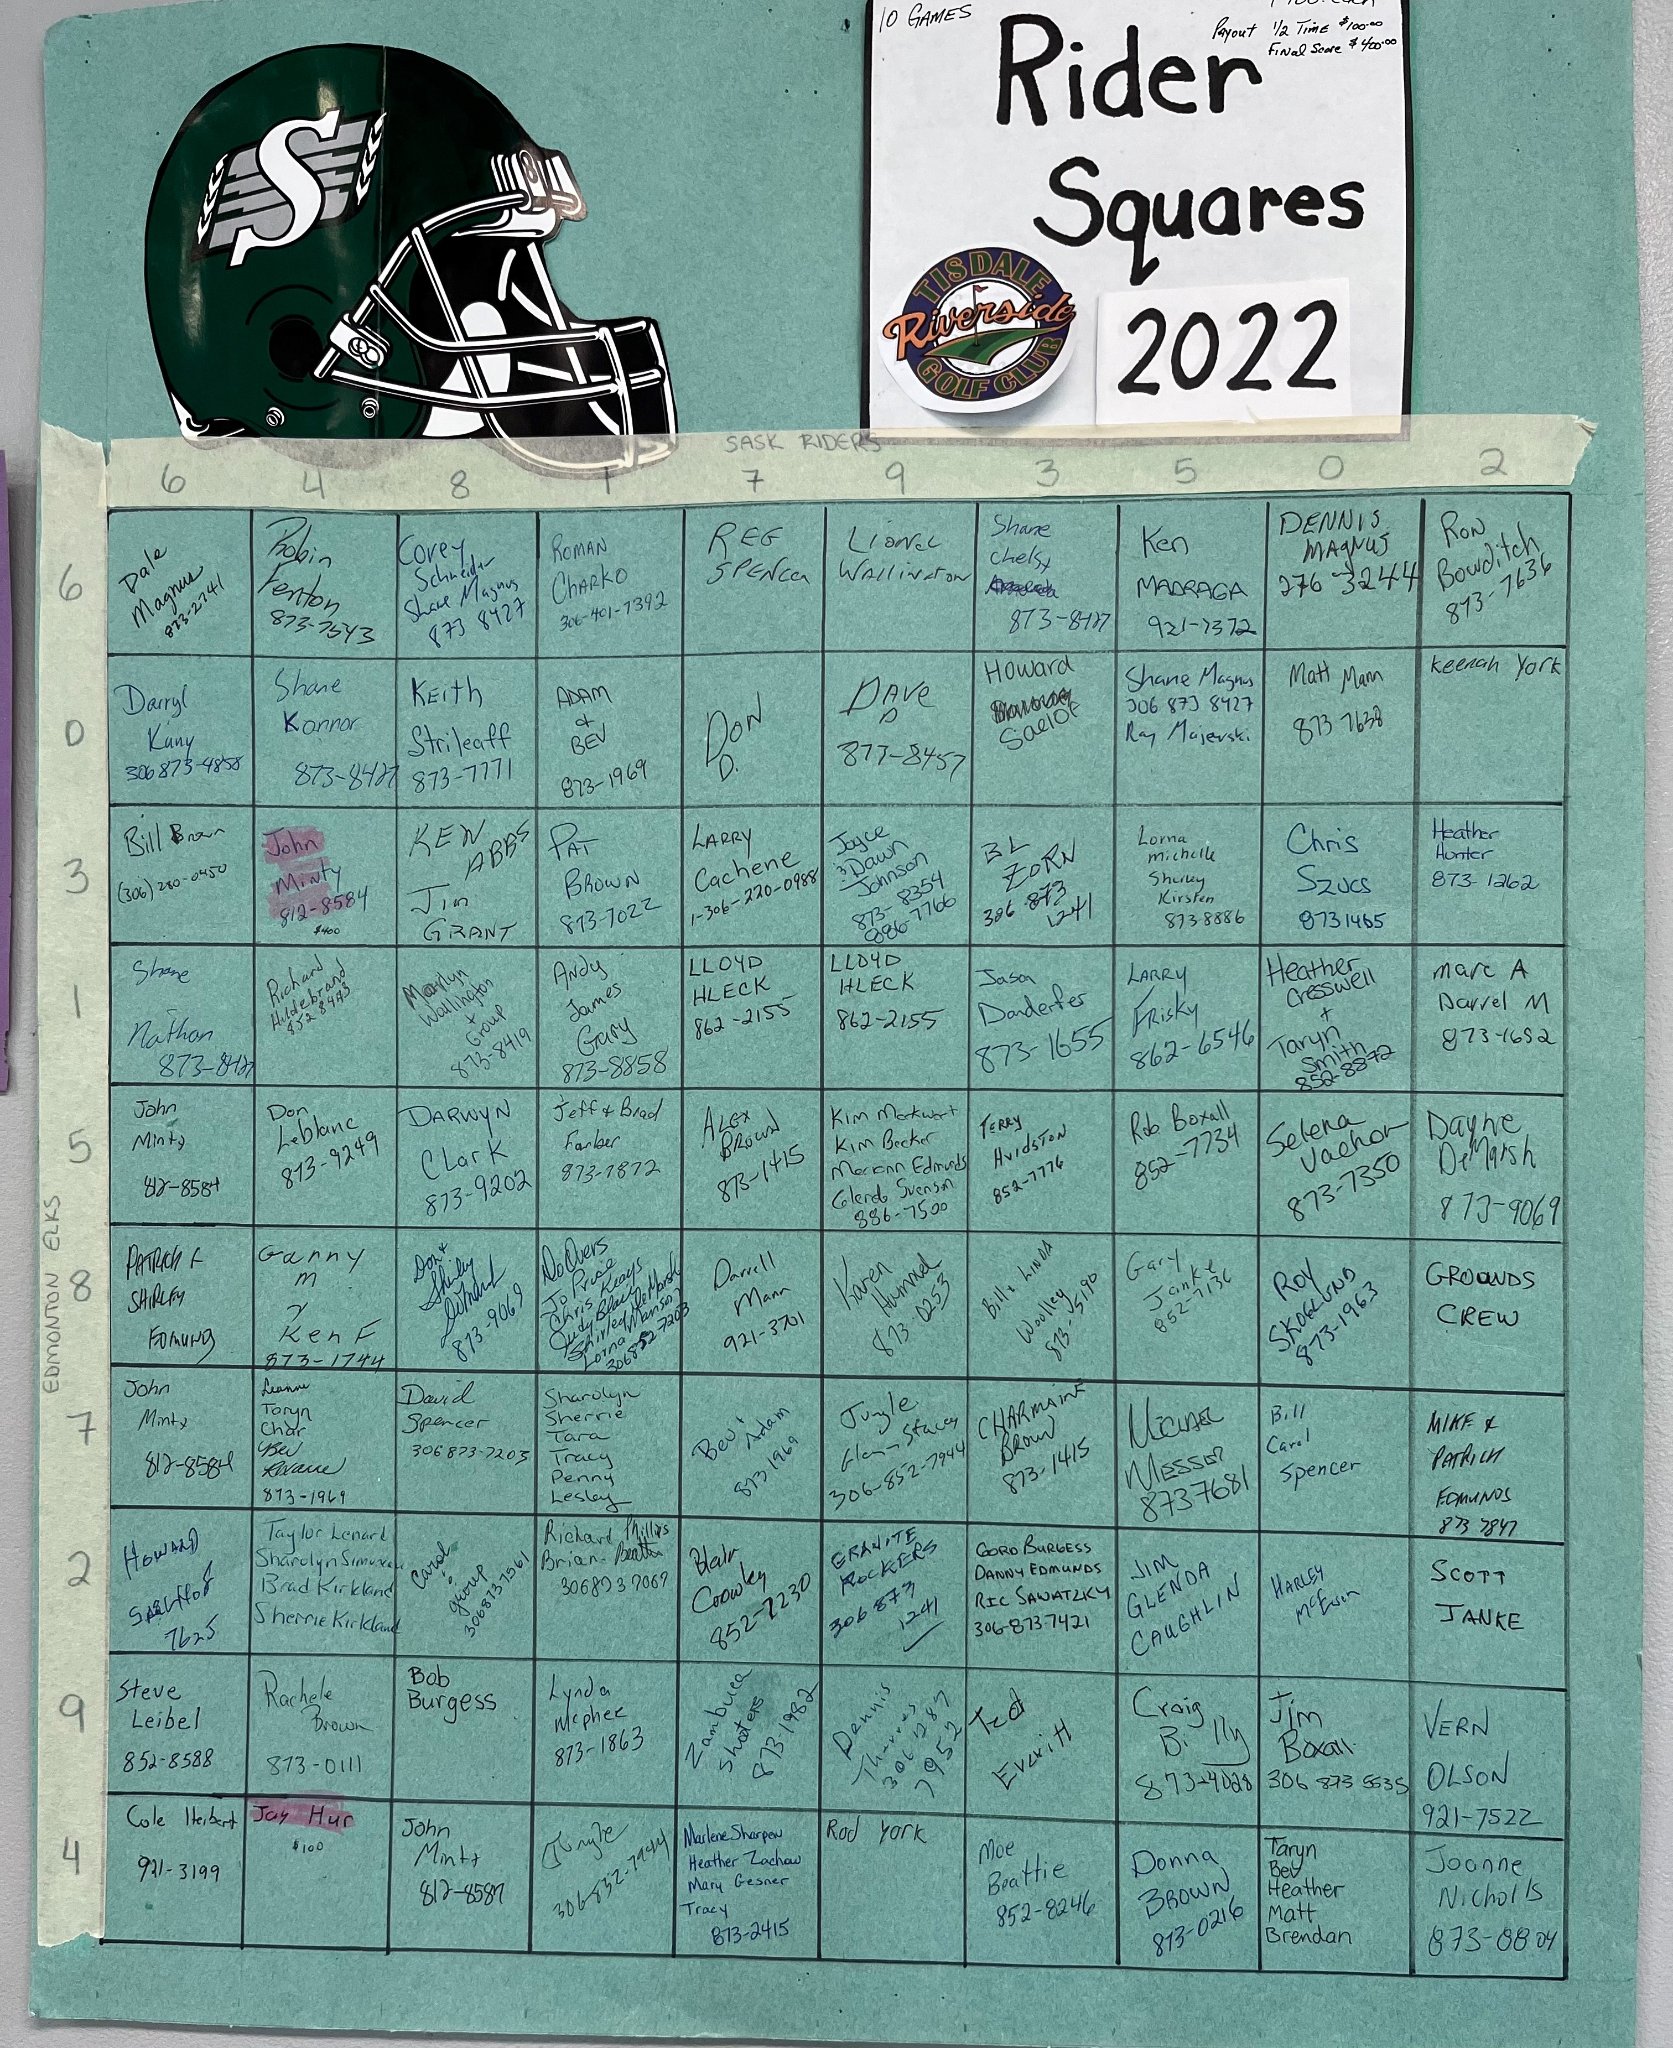 10 GAMES
Payout 1/2 Time $100.00
Final Score $400.00
Rider
Squares
TISDALE
Riverside
GOLF CLUB
2022
S
SASK RIDERS
6 4 8 1 7 9 3 5 0 2
EDMONTON ELKS
6
Dale
Magnus
873-2741
Robin
Fenton
873-7543
Corey
Schneider
Shane Magnus
873 8427
ROMAN
CHARKO
306-401-7392
REG
SPENCER
Lionel
Wallington
Shane
Chelsy
873-8427
Ken
MADRAGA
921-7372
DENNIS
MAGNUS
276-3244
Ron
Bowditch
873-7636
0
Darryl
Kuny
306 873-4858
Shane
Konnor
873-8427
Keith
Strileaff
873-7771
ADAM
&
BEV
873-1969
DON
D.
DAVE
D
877-8457
Howard
Saelof
Shane Magnus
306 873 8427
Ray Majewski
Matt Mann
873-7638
Keenah York
3
Bill Brown
(306) 280-0450
John
Minty
812-8584
$400
KEN
ABBS
Jim
GRANT
PAT
BROWN
873-7022
LARRY
Cachene
1-306-220-0988
Joyce
& Dawn
Johnson
873-8354
886-7766
BL
ZORN
306 873
1241
Lorna
Michelle
Shirley
Kirsten
873 8886
Chris
Szucs
873 1465
Heather
Hunter
873-1262
1
Shane
Nathan
873-8427
Richard
Hildebrand
852 8493
Marlyn
Wallington
+
Group
873-8419
Andy
James
Gary
873-8858
LLOYD
HLECK
862-2155
LLOYD
HLECK
862-2155
Jason
Danderfer
873-1655
LARRY
FRISKY
862-6546
Heather
Cresswell
+
Taryn
Smith
852-8872
Marc A
Darrel M
873-1652
5
John
Minty
812-8584
Don
Leblanc
873-9249
DARWYN
Clark
873-9202
Jeff & Brad
Farber
873-7872
ALEX
BROWN
873-1415
Kim Markwart
Kim Becker
Mariann Edmunds
Glenda Svenson
886-7500
TERRY
Hvidston
852-7776
Rob Boxall
852-7734
Selena
Vachon
873-7350
Dayne
DeMarsh
873-9069
8
PATRICK &
SHIRLEY
EDMUNDS
Ganny
m
Ken F
873-1744
Don +
Shirley
873-9069
Do Overs
Jo Prusie
Chris Keays
Judy Blair
Shirley DeMarsh
Lorna Manson
306 852-7203
Darrell
Mann
921-3701
Karen
Hummel
873-0253
Bill & LINDA
Woolley
873-5190
Gary
Janke
852-7136
Roy
SKOGLUND
873-1963
GROUNDS
CREW
7
John
Minty
812-8584
Leanne
Taryn
Char
Bev
Roxanne
873-1969
David
Spencer
306 873-7203
Sharolyn
Sherrie
Tara
Tracy
Penny
Lesley
Bev & Adam
873 1969
Jungle
Glen - Stacey
306-852-7944
CHARMAINE
BROWN
873-1415
Michael
Messer
873 7681
Bill
Carol
Spencer
MIKE &
PATRICK
EDMUNDS
873 7847
2
HOWARD
SAELHOF
7625
Taylor Lenard
Sharolyn Simoneau
Brad Kirkland
Sherrie Kirkland
Carol
&
group
306 873 7561
Richard Phillips
Brian Beattie
306873 7069
Blair
Crowley
852-7230
GRANITE
ROCKERS
306 873
1241
GORD BURGESS
DANNY EDMUNDS
RIC SAWATZKY
306-873-7421
JIM
GLENDA
CAUGHLIN
HARLEY
McEwen
SCOTT
JANKE
9
Steve
Leibel
852-8588
Rachele
Brown
873-0111
Bob
Burgess
Lynda
mcphee
873-1863
Zambuca
Shooters
873-1982
Dennis
Thorres
306 1287
7952
Ted
Everitt
Craig
Billy
873-4028
Jim
Boxall
306 873 5535
VERN
OLSON
921-7522
4
Cole Herbert
921-3199
Jay Hur
$100
John
Minty
812-8584
Jungle
306-852-7944
Marlene Sharpen
Heather Zachow
Mary Gesner
Tracy
873-2415
Rod York
Moe
Beattie
852-8246
Donna
BROWN
873-0216
Taryn
Bev
Heather
Matt
Brendan
Joanne
Nicholls
873-0804